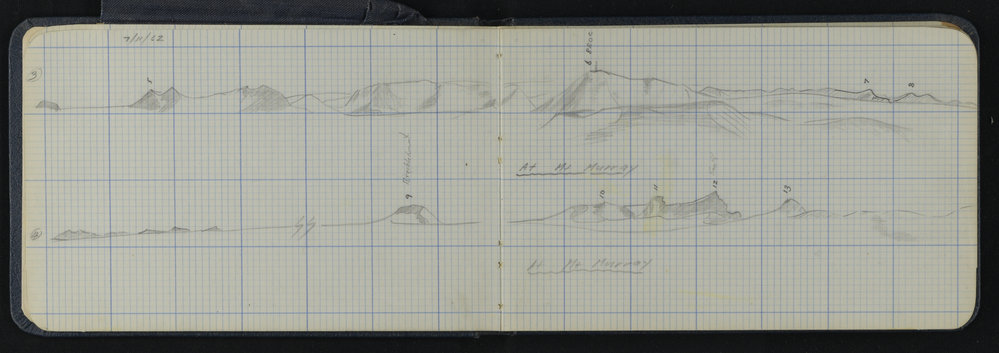 7/11/62
3)
5
6 PROC
7
8
At Mt Murray
4)
9
10
11
12
13
At Mt Murray